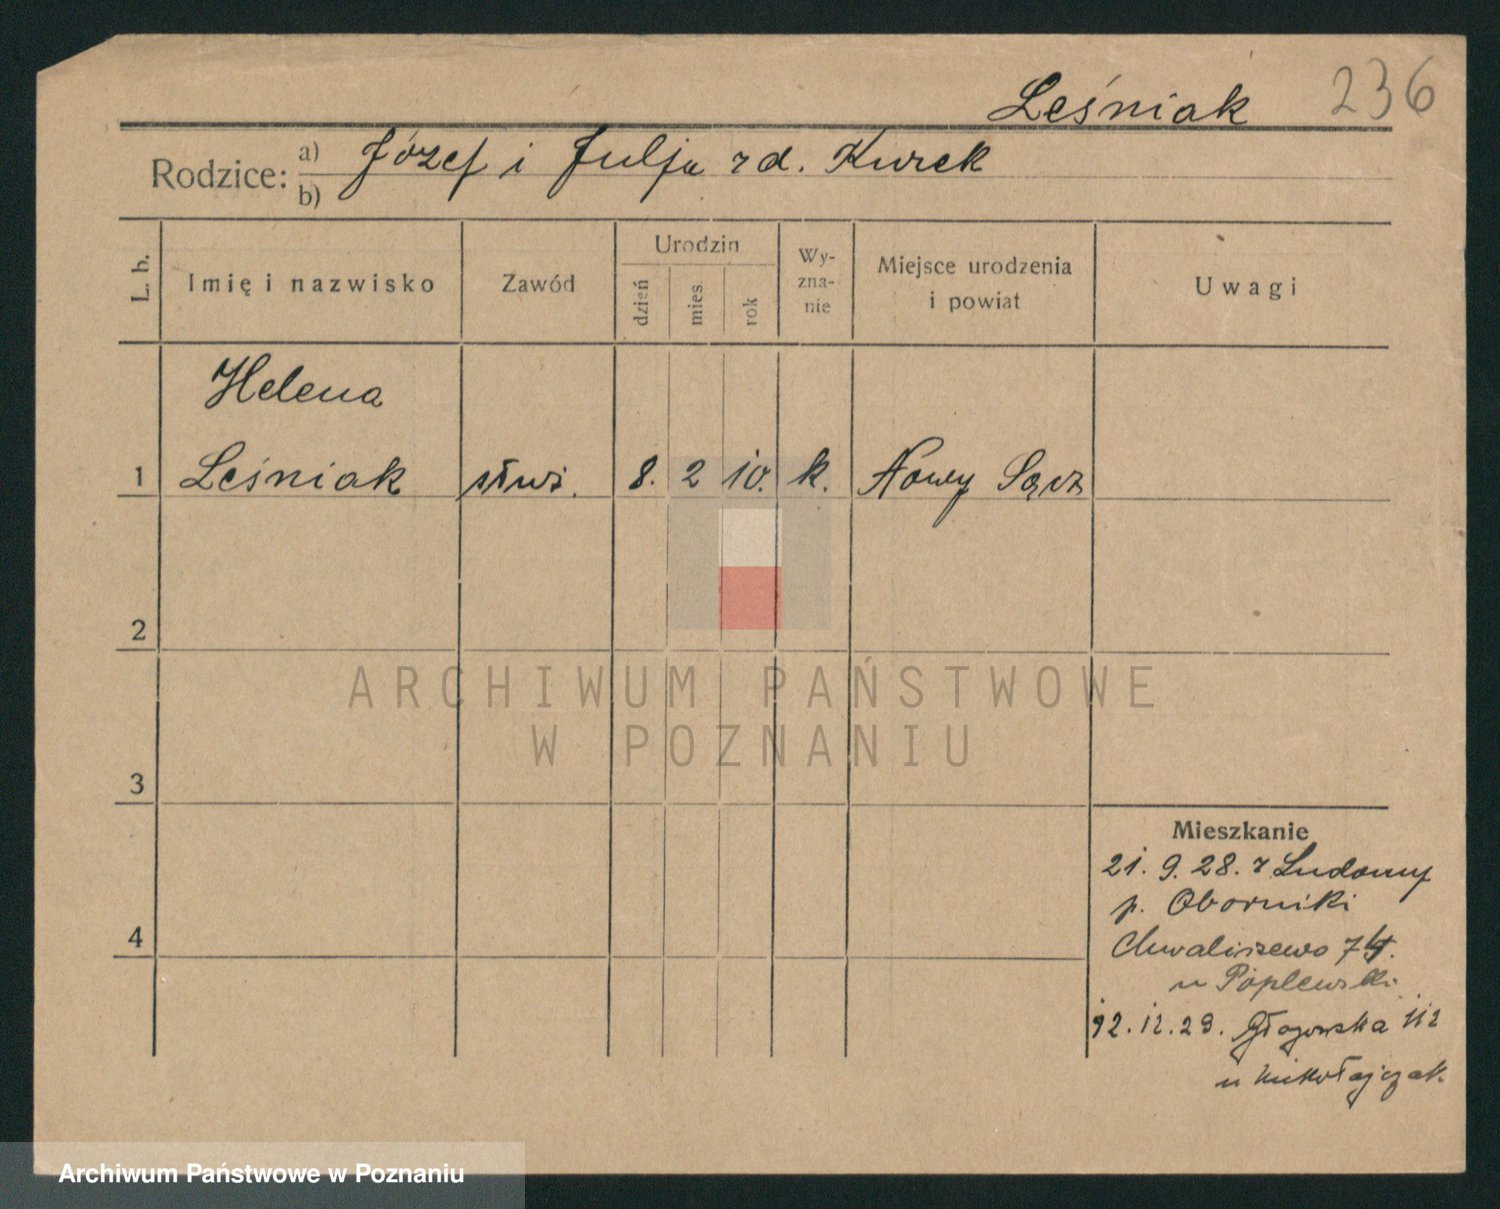 Leśniak 236
Rodzice: a) Józef i Julja zd. Kurek
b)
L. b.
Imię i nazwisko
Zawód
Urodzin
dzień
mies.
rok
Wy-
zna-
nie
Miejsce urodzenia
i powiat
Uwagi
Helena
1 Leśniak służ. 8. 2 10. k. Nowy Sącz
2
ARCHIWUM PAŃSTWOWE
W POZNANIU
3
Mieszkanie
21. 9. 28. z Ludomy
p. Oborniki
4
Chwaliszewo 74.
u Poplewski
12. 12. 29. Głogowska 112
u Mikołajczak
Archiwum Państwowe w Poznaniu